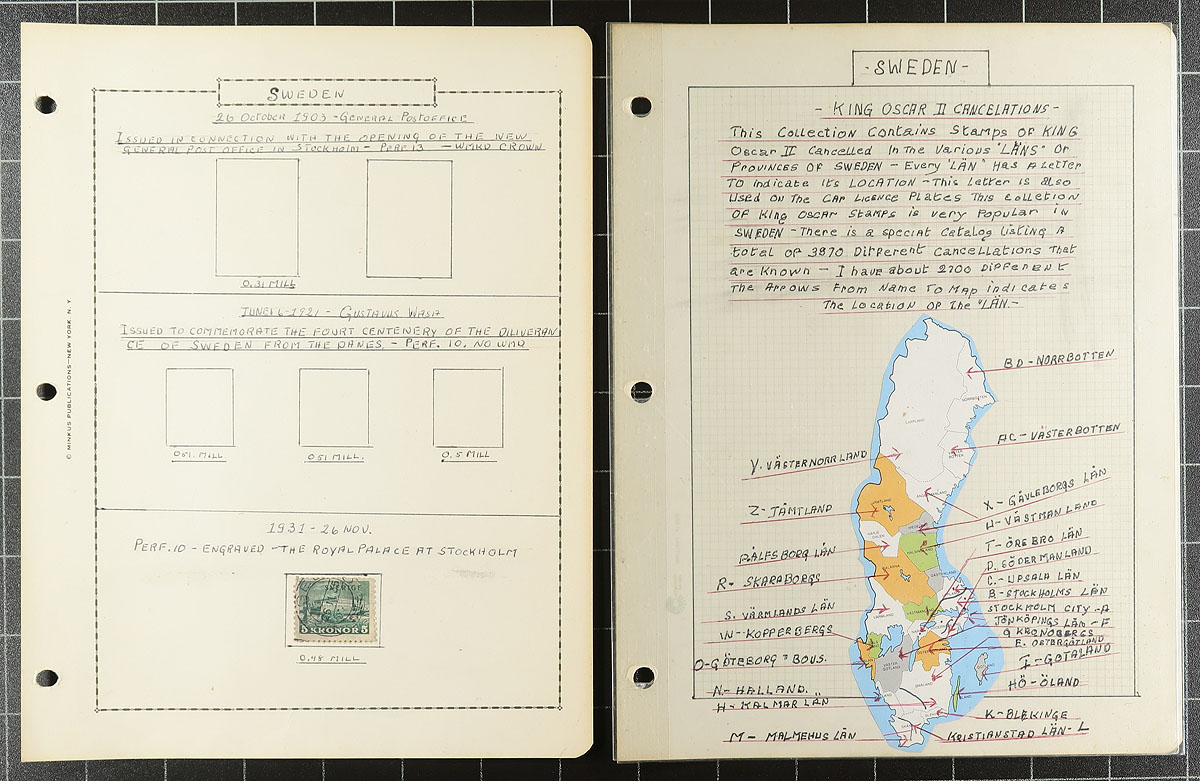 SWEDEN
26 October 1903 - General Postoffice
Issued in connection with the opening of the new
general post office in Stockholm - Perf. 13 - WMKD CROWN
0.31 MILL
JUNE 6-1921 - Gustavus Wasa
Issued to commemorate the fourt centenery of the diliveran
ce of Sweden from the Danes. - Perf. 10. NO WMD
051. MILL
051 MILL.
0.5 MILL
1931 - 26 NOV.
PERF. 10 - ENGRAVED - THE ROYAL PALACE AT STOCKHOLM
SVERIGE
5 KRONOR 5
0.48 MILL
© MINKUS PUBLICATIONS—NEW YORK, N. Y.
- SWEDEN -
- KING OSCAR II CANCELATIONS -
This Collection Contains Stamps of KING
Oscar II Cancelled In the Various "LÄNS" Or
Provinces OF SWEDEN - Every "LÄN" Has A Letter
TO Indicate Its LOCATION - This Letter is also
Used on The Car Licence Plates This colletion
OF King Oscar Stamps is very Popular in
SWEDEN - There is a special Catalog Listing A
total of 3870 Different Cancellations That
are Known - I have about 2700 Different
The Arrows From Name To Map indicates
The Location of the "LÄN. -
BD - NORRBOTTEN
AC - VÄSTERBOTTEN
Y. VÄSTERNORRLAND
X - GÄVLEBORGS LÄN
U - VÄSTMANLAND
Z - JÄMTLAND
T - ÖREBRO LÄN
P. ÄLFSBORG LÄN
D. SÖDERMANLAND
C. - UPSALA LÄN
R - SKARABORGS
B - STOCKHOLMS LÄN
STOCKHOLM CITY - A
S. VÄRMLANDS LÄN
JÖNKÖPINGS LÄN - F
G KRONOBERGS
W - KOPPERBERGS
E. OSTERGÖTLAND
I - GOTALAND
O - GÖTEBORG - BOUS.
HÖ - ÖLAND
N - HALLAND.
H - KALMAR LÄN
K - BLEKINGE
KRISTIANSTAD LÄN - L
M - MALMEHUS LÄN